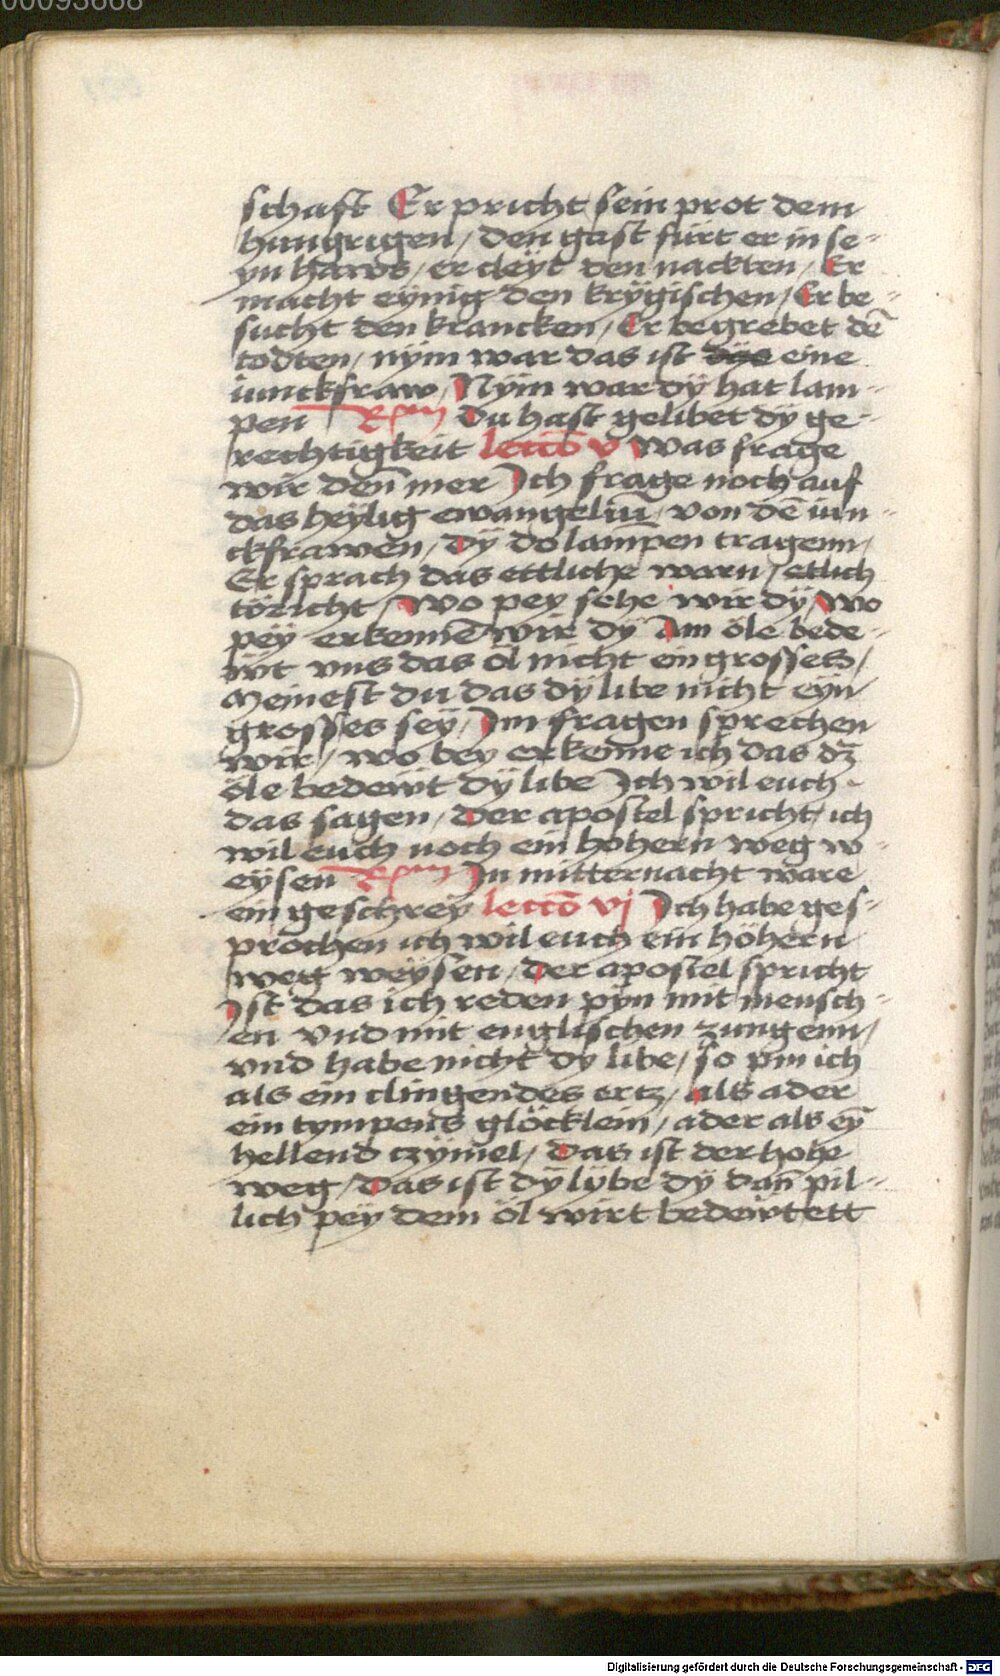 00093668
schaft Er pricht sein prot dem
hungrigen / den gast furt er in se-
yn haws / er cleyt den nackten / Er
macht eÿnig den krÿgischen / Er be-
sucht den krancken / Er begrebet dē
todten / nÿm war das ist eine
iunckfraw / Nÿm war dÿ hat lam-
pen Rm Du hast gelibet dÿ ge-
rechtigkeit lectō v Was frage
wir den̄ mer Ich frage noch auf
das heÿlig ewangeliū / von dē iun-
ckfrawen / dÿ do lampen tragenn /
Er sprach das ettliche warn / etlich
töricht / Wo pey sehe wir dÿ / Wo
pëy erkennē wir dÿ Am öle bede-
wt vns das öl nicht ein grosses /
Meinest du das dÿ libe nicht eÿn
grosses seÿ / Im fragen sprechen
wir / wo bey erken̄ne ich das dz
öle bedewt dÿ libe Ich wil euch
das sagen / Der apostel spricht / ich
wil euch noch ein hohern weg w-
eÿsen Rm In mitternacht ware
ein geschrey lectō vj Ich habe ges-
prochen ich wil euch ein höhern
weg weÿsen / Der apostel spricht
Ist das ich reden pÿn mit mensch-
en vnd mit englischen zungenn /
vnd habe nicht dy libe / so pin ich
als ein clingendes ertz / als ader
ein tympens glöcklein / ader als eȳ
hellend czÿmel / Das ist der hohe
weg / Das ist dÿ lÿbe dÿ dan̄ pil-
lich pëy dem öl wirt bedewtett
Digitalisierung gefördert durch die Deutsche Forschungsgemeinschaft - DFG